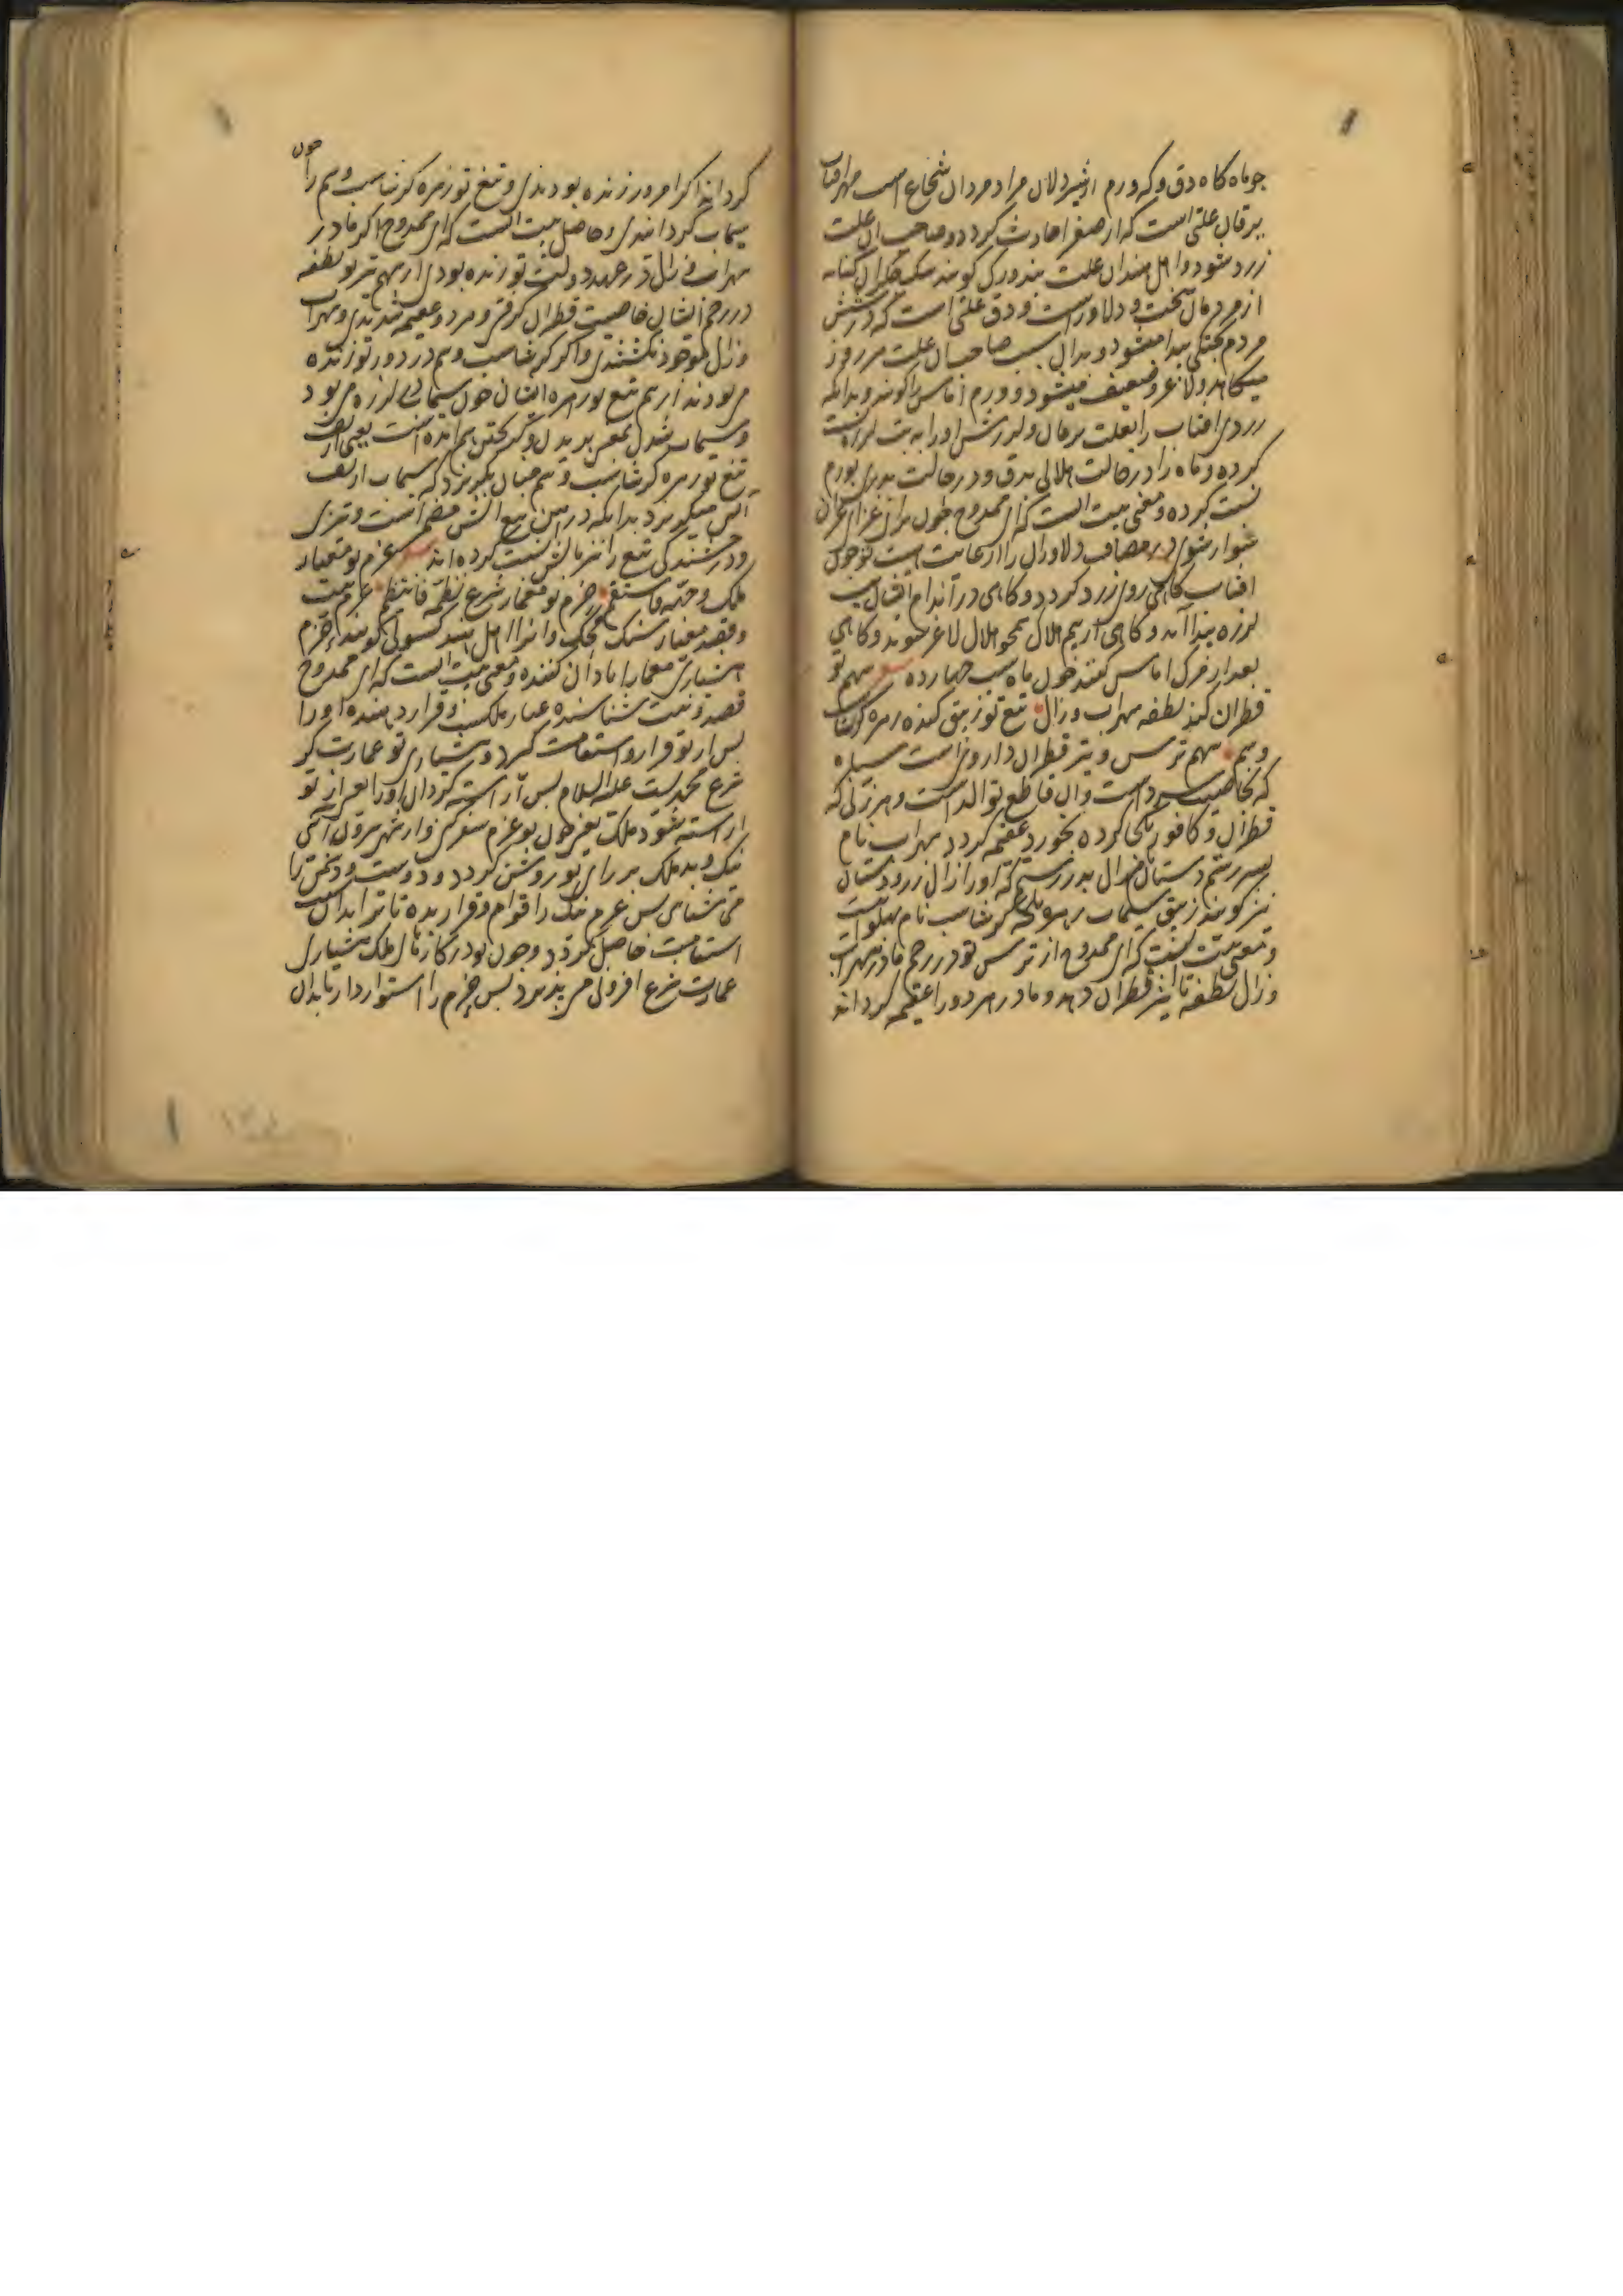 جو ماه کاه دق و که ورم از شیر دلان مراد مردان شجاع است مهر افتاب
یرقان علتی است که از صفرا حادث کردد و صاحب ان علت
زرد شود و اهل هند ان علت کویند کنایه
از مردمان سخت و دلاورست و دق علتی است که در شش
مردم پیدا میشود و بدان سبب صاحب ان علت هر روز
میکاهد و لاغر و ضعیف میشود و ورم اماس را کویند و بدانکه
زردی افتاب را بعلت یرقان و لرزش او را به تب لرزه نسبت
کرده و ماه را در حالت هلالی بدق و در حالت بدری بورم
نسبت کرده و معنی بیت انست که ای ممدوح چون برای غزای
سوار شوی در مصاف دلاوران را از مهابت تو چون
افتاب کاهی روی زرد کردد و کاهی در اندام افتاب
لرزه پیدا آید و کاهی از بیم هلاک همچو هلال لاغر شوند و کاهی
بعد از مرک اماس کنند چون ماه شب چهارده سهم تو
قطران کند نطفه سهراب و زال تیغ تو زیبق کند زهره کرشاسب
و سم سهم ترس و تیر قطران داروی است سیاه
که بخاصیت سرد است و ان قاطع توالد است و هر زنی که
قطران و کافور یکی کرده بخورد عقیمه کردد سهراب نام
پسر رستم دستان زال پدر رستم که او را زال زر و دستان
نیز کویند زیبق سیماب زهره کرشاسب نام پهلوانیست
و معنی بیت انست که ای ممدوح از ترس تو در رحم مادر سهراب
و زال نطفه تاثیر قطران دهد و مادر هر دو را عقیمه کرداند
کرداند اکر امروز زنده بودندی و تیغ تو زهره کرشاسب و سم را چون
سیماب کردانیدی و حاصل بیت انست که ای ممدوح اکر مادر
سهراب و زال در عهد دولت تو زنده بودی از سهم تیر تو نطفه
در رحم ایشان خاصیت قطران کرفتی و مرد و عقیمه شدندی و سهراب
و زال موجود نکشتندی و اکر کرشاسب و سم در دور تو زنده
می بودند از سم تیغ تو زهره ایشان چون سیماب لرزه می بود
و سیماب شدن بمعنی بریدن و کریختن هم امده است یعنی از تف
تیغ تو زهره کرشاسب و سم چنان بکریزد که سیماب از تف
اتش میکریزد بدانکه درین تیغ اتش مضمر است و تیزی
و درخشندکی تیغ را نیز باتش نسبت کرده اند عزم تو معیار
ملک وجهه فاستقم حزم تو معمار شرع نظمه فانتظم عزم نیت
و قصد معیار سنک محک و انرا اهل هند کسوتی کویند حزم
هشیاری معمار ابادان کننده و معنی بیت انست که ای ممدوح
قصد و نیت شناسنده عیار ملکست و قرار دهنده او را
پس از تو قرار و استقامت کیرد و هشیاری تو عمارت کر
شرع محمدیست علیه السلام پس اراسته کردان او را بعد از تو
اراسته شود ملک یعنی چون تو عزم سفر کنی و از شهر بیرون ائی
نیک و بد ملک بر رای تو روشن کردد و دوست و دشمن را
می شناسی پس عزم نیک را قوام و قرار بده تا ترا بدان سبب
استقامت حاصل کردد و چون تو در کارهای ملک هشیاری
عمارت شرع افزونی می پذیرد پس حزم را استوار دار تا بدان